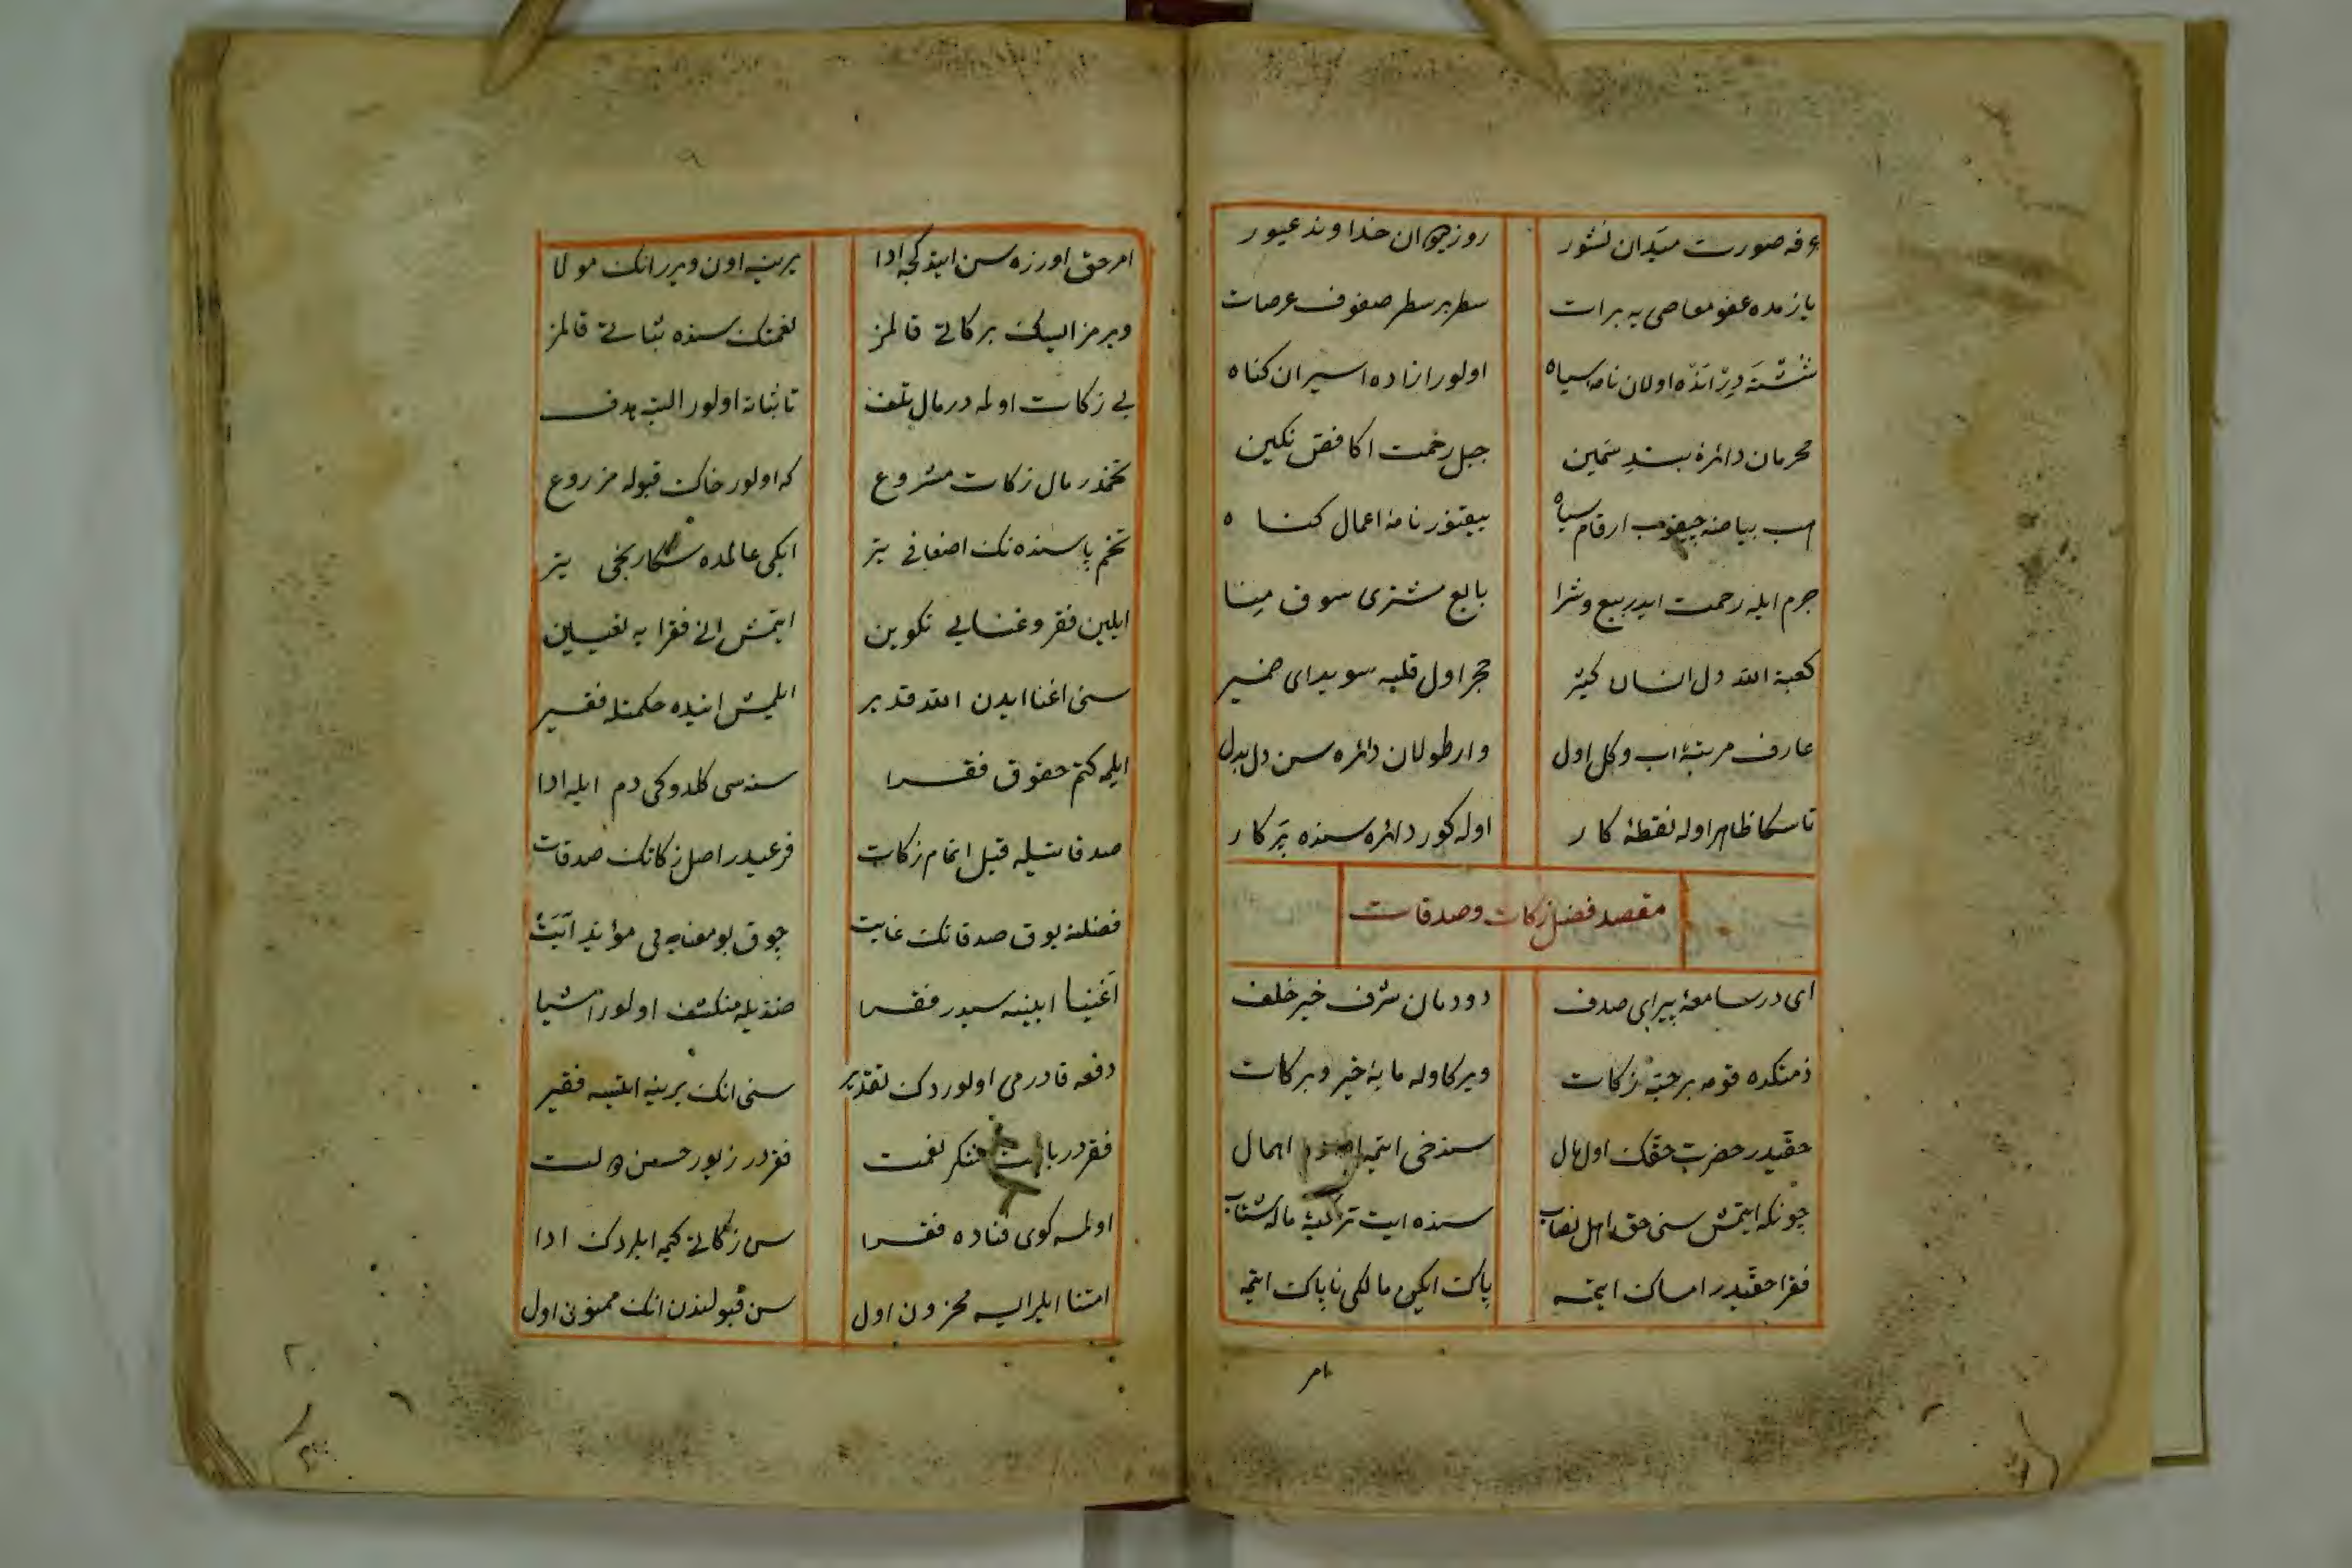 عرفه صورت میدان نشور
روز دیوان خداوند غیور
یازمده عفو معاصی یه برات
سطر بر سطر صفوف عرصات
اولان نامه سیاه
اولور ازاده اسیران کناه
محرمان دائره بند سمین
جبل رحمت اکا فص نکین
بیاضنه چیقوب ارقام سیاه
بیقنور نامهٔ اعمال کناه
جرم ایله رحمت ایدر بیع و شرا
بایع مشتری سوق مینا
کعبة الله دل انسان کبیر
حجر اول قلبه سویدای ضمیر
عارف مرتبهٔ اب و کل اول
وار طولان دائره سن دل بدل
تا سکا ظاهر اوله نقطهٔ کار
اوله کور دائره سنده پرکار
مقصد فضل زکات وصدقات
ای در سامعه پیرای صدف
دودمان شرف خیر خلف
ذمتکده قومه بر حبه زکات
ویرکه اوله مایهٔ خیر وبرکات
حقیدر حضرت حقک اول مال
سنده خی ایتمه اهمال
چونکه ایتمش سنی حق اهل نصاب
سنده ایت تزکیهٔ ماله شتاب
فقرا حقیدر امساک ایتمه
پاک ایکن مالکی ناپاک ایتمه
امر
امر حق اوزره سن ایتدکجه ادا
برینه اون ویرر انک مولا
ویرمز ایسک برکاتی قالمز
نعمتک سنده ثباتی قالمز
بی زکات اولمه در مال تلف
نائباته اولور البته هدف
تخمدر مال زکات مشروع
که اولور خاک قبوله مزروع
تخم پاشنده نک اضعافی یتر
ایکی عالمده سکا ربحی یتر
ایلین فقر وغنایی تکوین
ایتمش انی فقرایه تعیین
سنی اغنا ایدن الله قدیر
ایلمش انیده حکمتله فقیر
ایلمه کتم حقوق فقرا
سنه سی کلدوکی دم ایله ادا
صدقاتیله قبل اتمام زکات
فرعیدر اصل زکاتک صدقات
فضلنه یوق صدقاتک غایت
چوق بو معنایه مؤید آیت
اغنیا ایینه سیدر فقرا
ضدیله منکشف اولور اشیا
دفعه قادرمی اولوردک تقدیر
سنی انک یرینه ایتسه فقیر
فقردر باعث شکر نعمت
فقردر زیور حسن دولت
اولمسه کوی فتاده فقرا
سن زکاتی کیمه ایلردک ادا
امتنا ایلر ایسه محزون اول
سن قبولندن انک ممنون اول